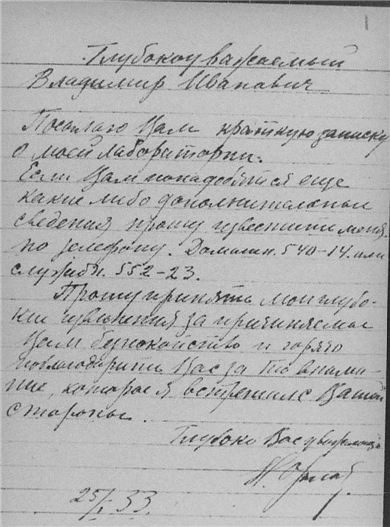 1
Глубокоуважаемый
Владимир Иванович
Посылаю Вам краткую записку
о моей лаборатории.
Если Вам понадобятся еще
какие либо дополнительные
сведения прошу известить меня
по телефону. Домашн. 540-14. или
служебн. 552-23.
Прошу принять мои глубо-
кие извинения за причиняемое
Вам беспокойство и горячо
поблагодарить Вас за то внима-
ние, которое я встретил с Вашей
стороны.
Глубоко Вас уважающий
25/I 33.